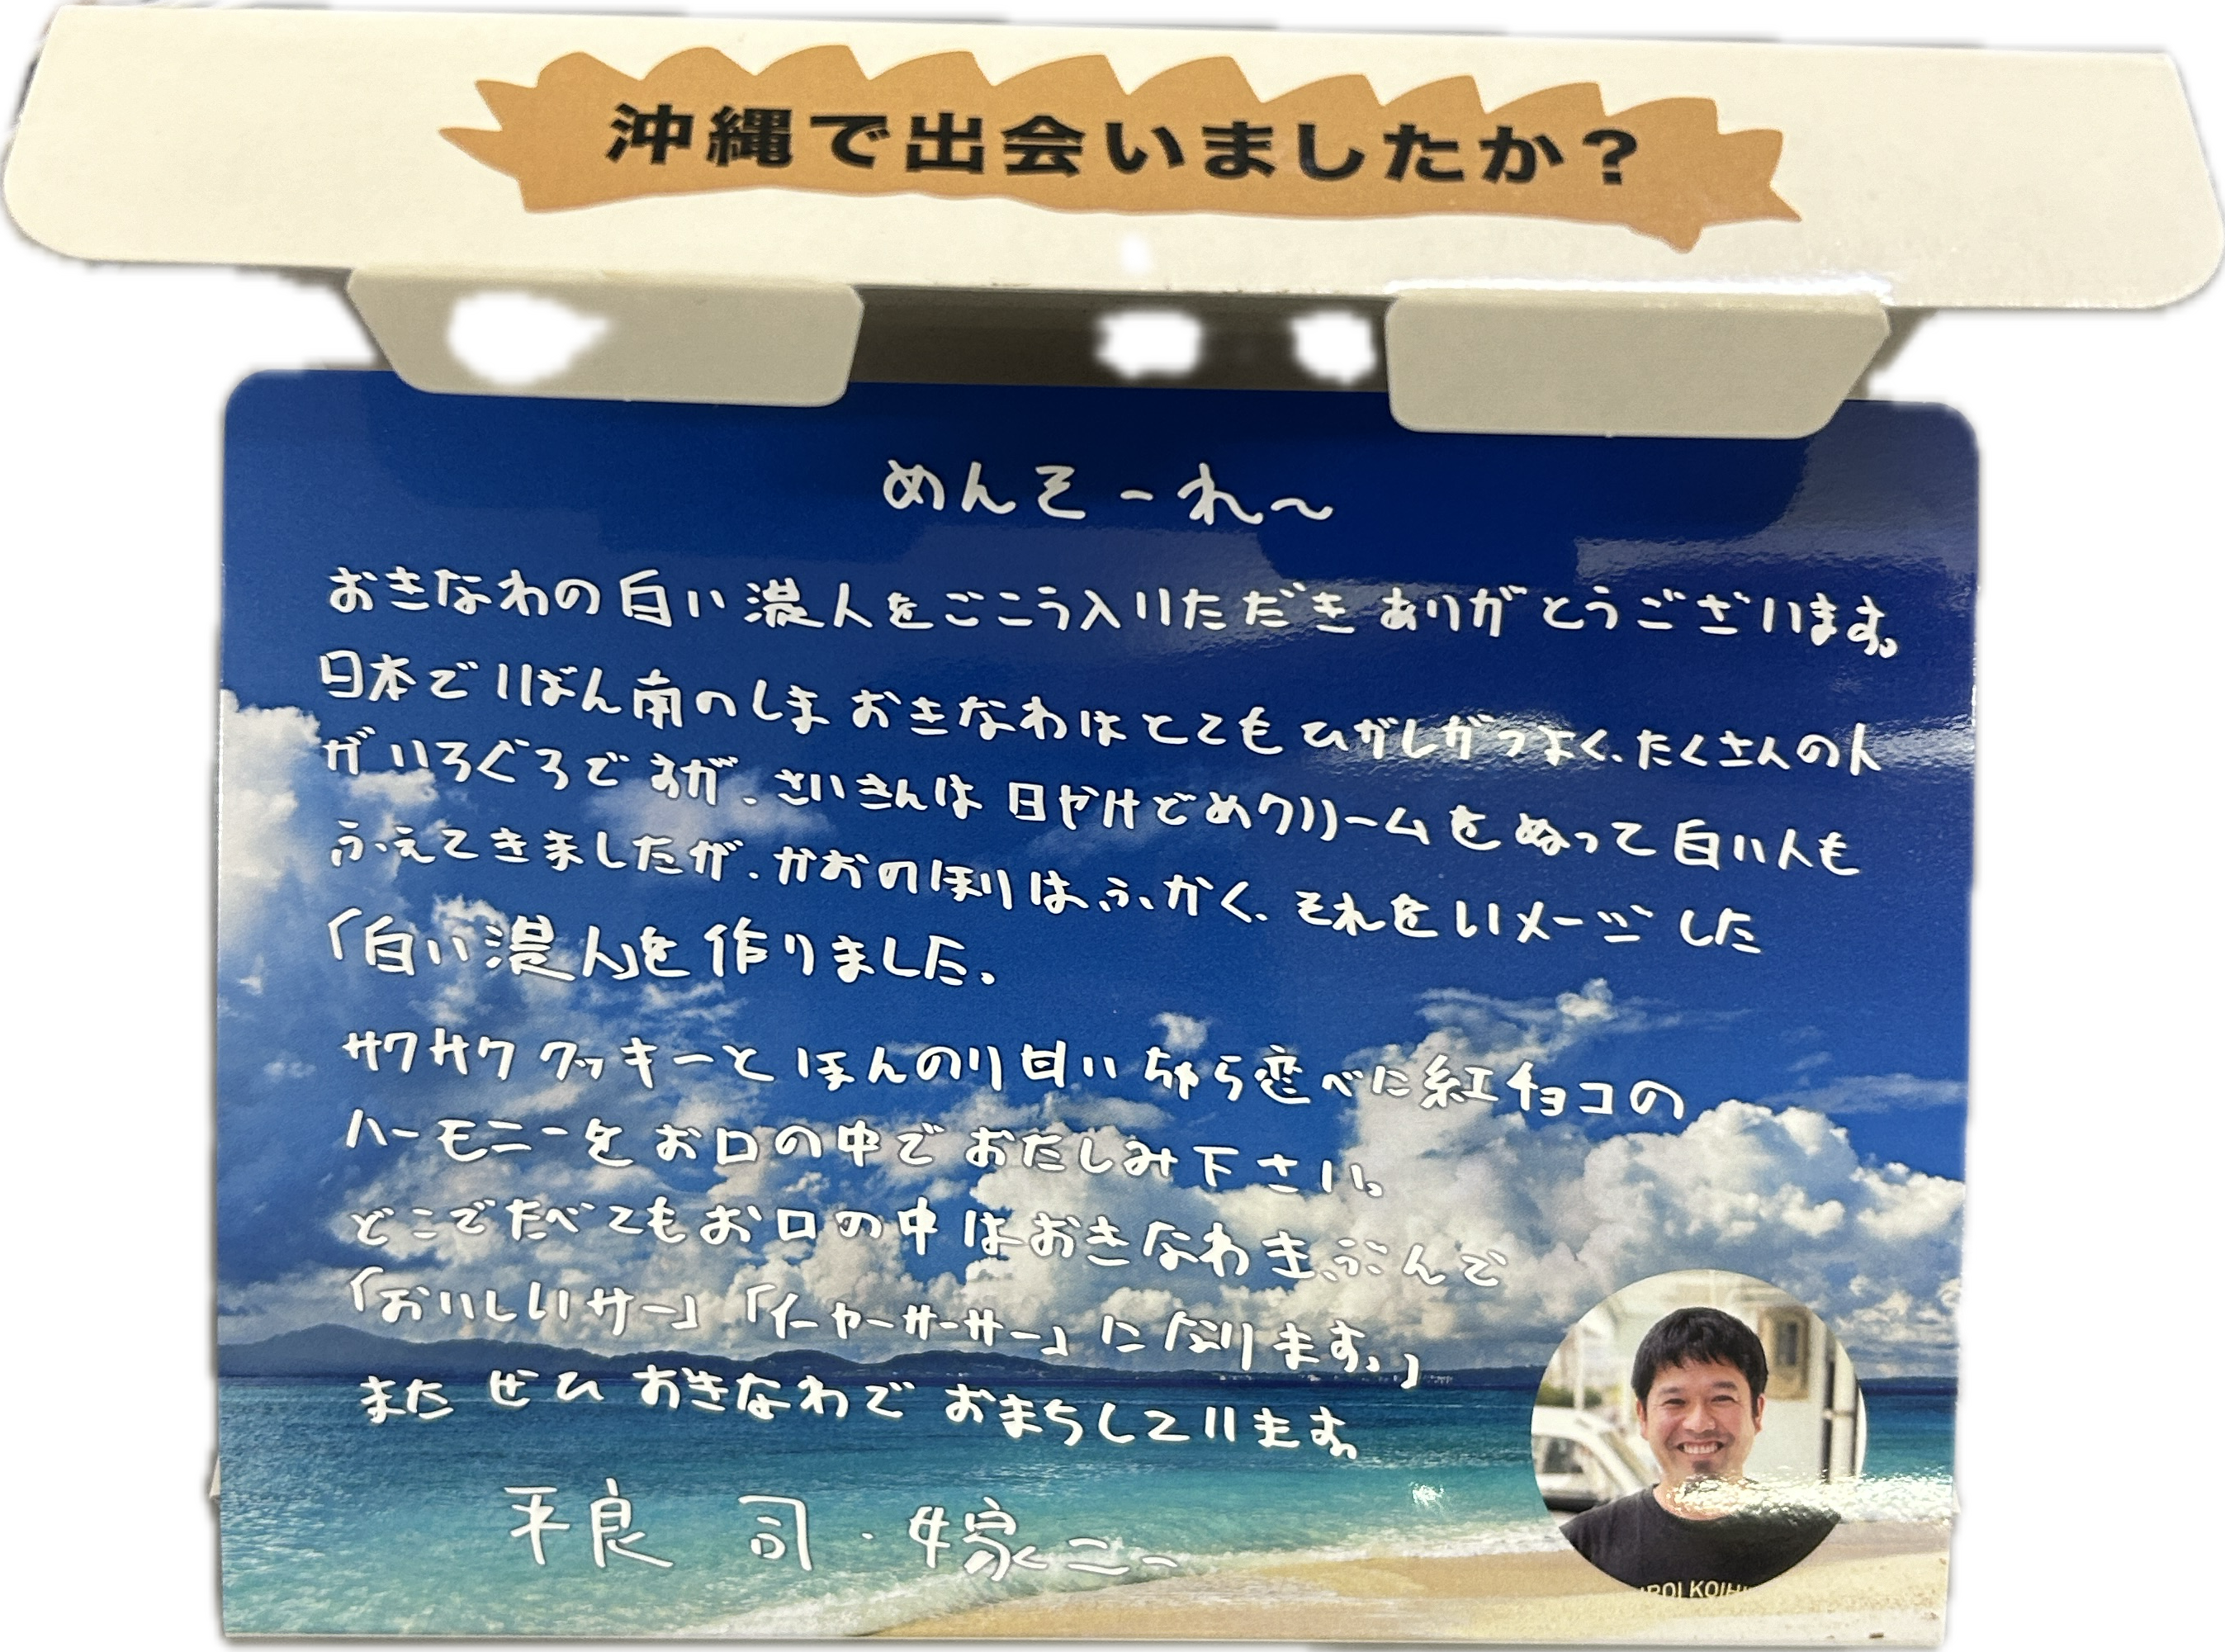 沖縄で出会いましたか？
めんそーれ～
おきなわの白い濃人をごこう入いただきありがとうございます。
日本でいばん南のしまおきなわはとてもひがしがつよく、たくさんの人
がいろぐろですが、さいきんは日やけどめクリームをぬって白い人も
ふえてきましたが、かおのほりはふかく、それをいメージした
「白い濃人」を作りました。
サクサククッキーとほんのり甘いちゅら恋べに紅チョコの
ハーモニーをお口の中でおたしみ下さい。
どこでたべてもお口の中はおきなわきぶんで
「おいしいサー」「イーヤーサーサー」になります。」
またぜひおきなわでおまちしています。
平良 司・嫁ニー